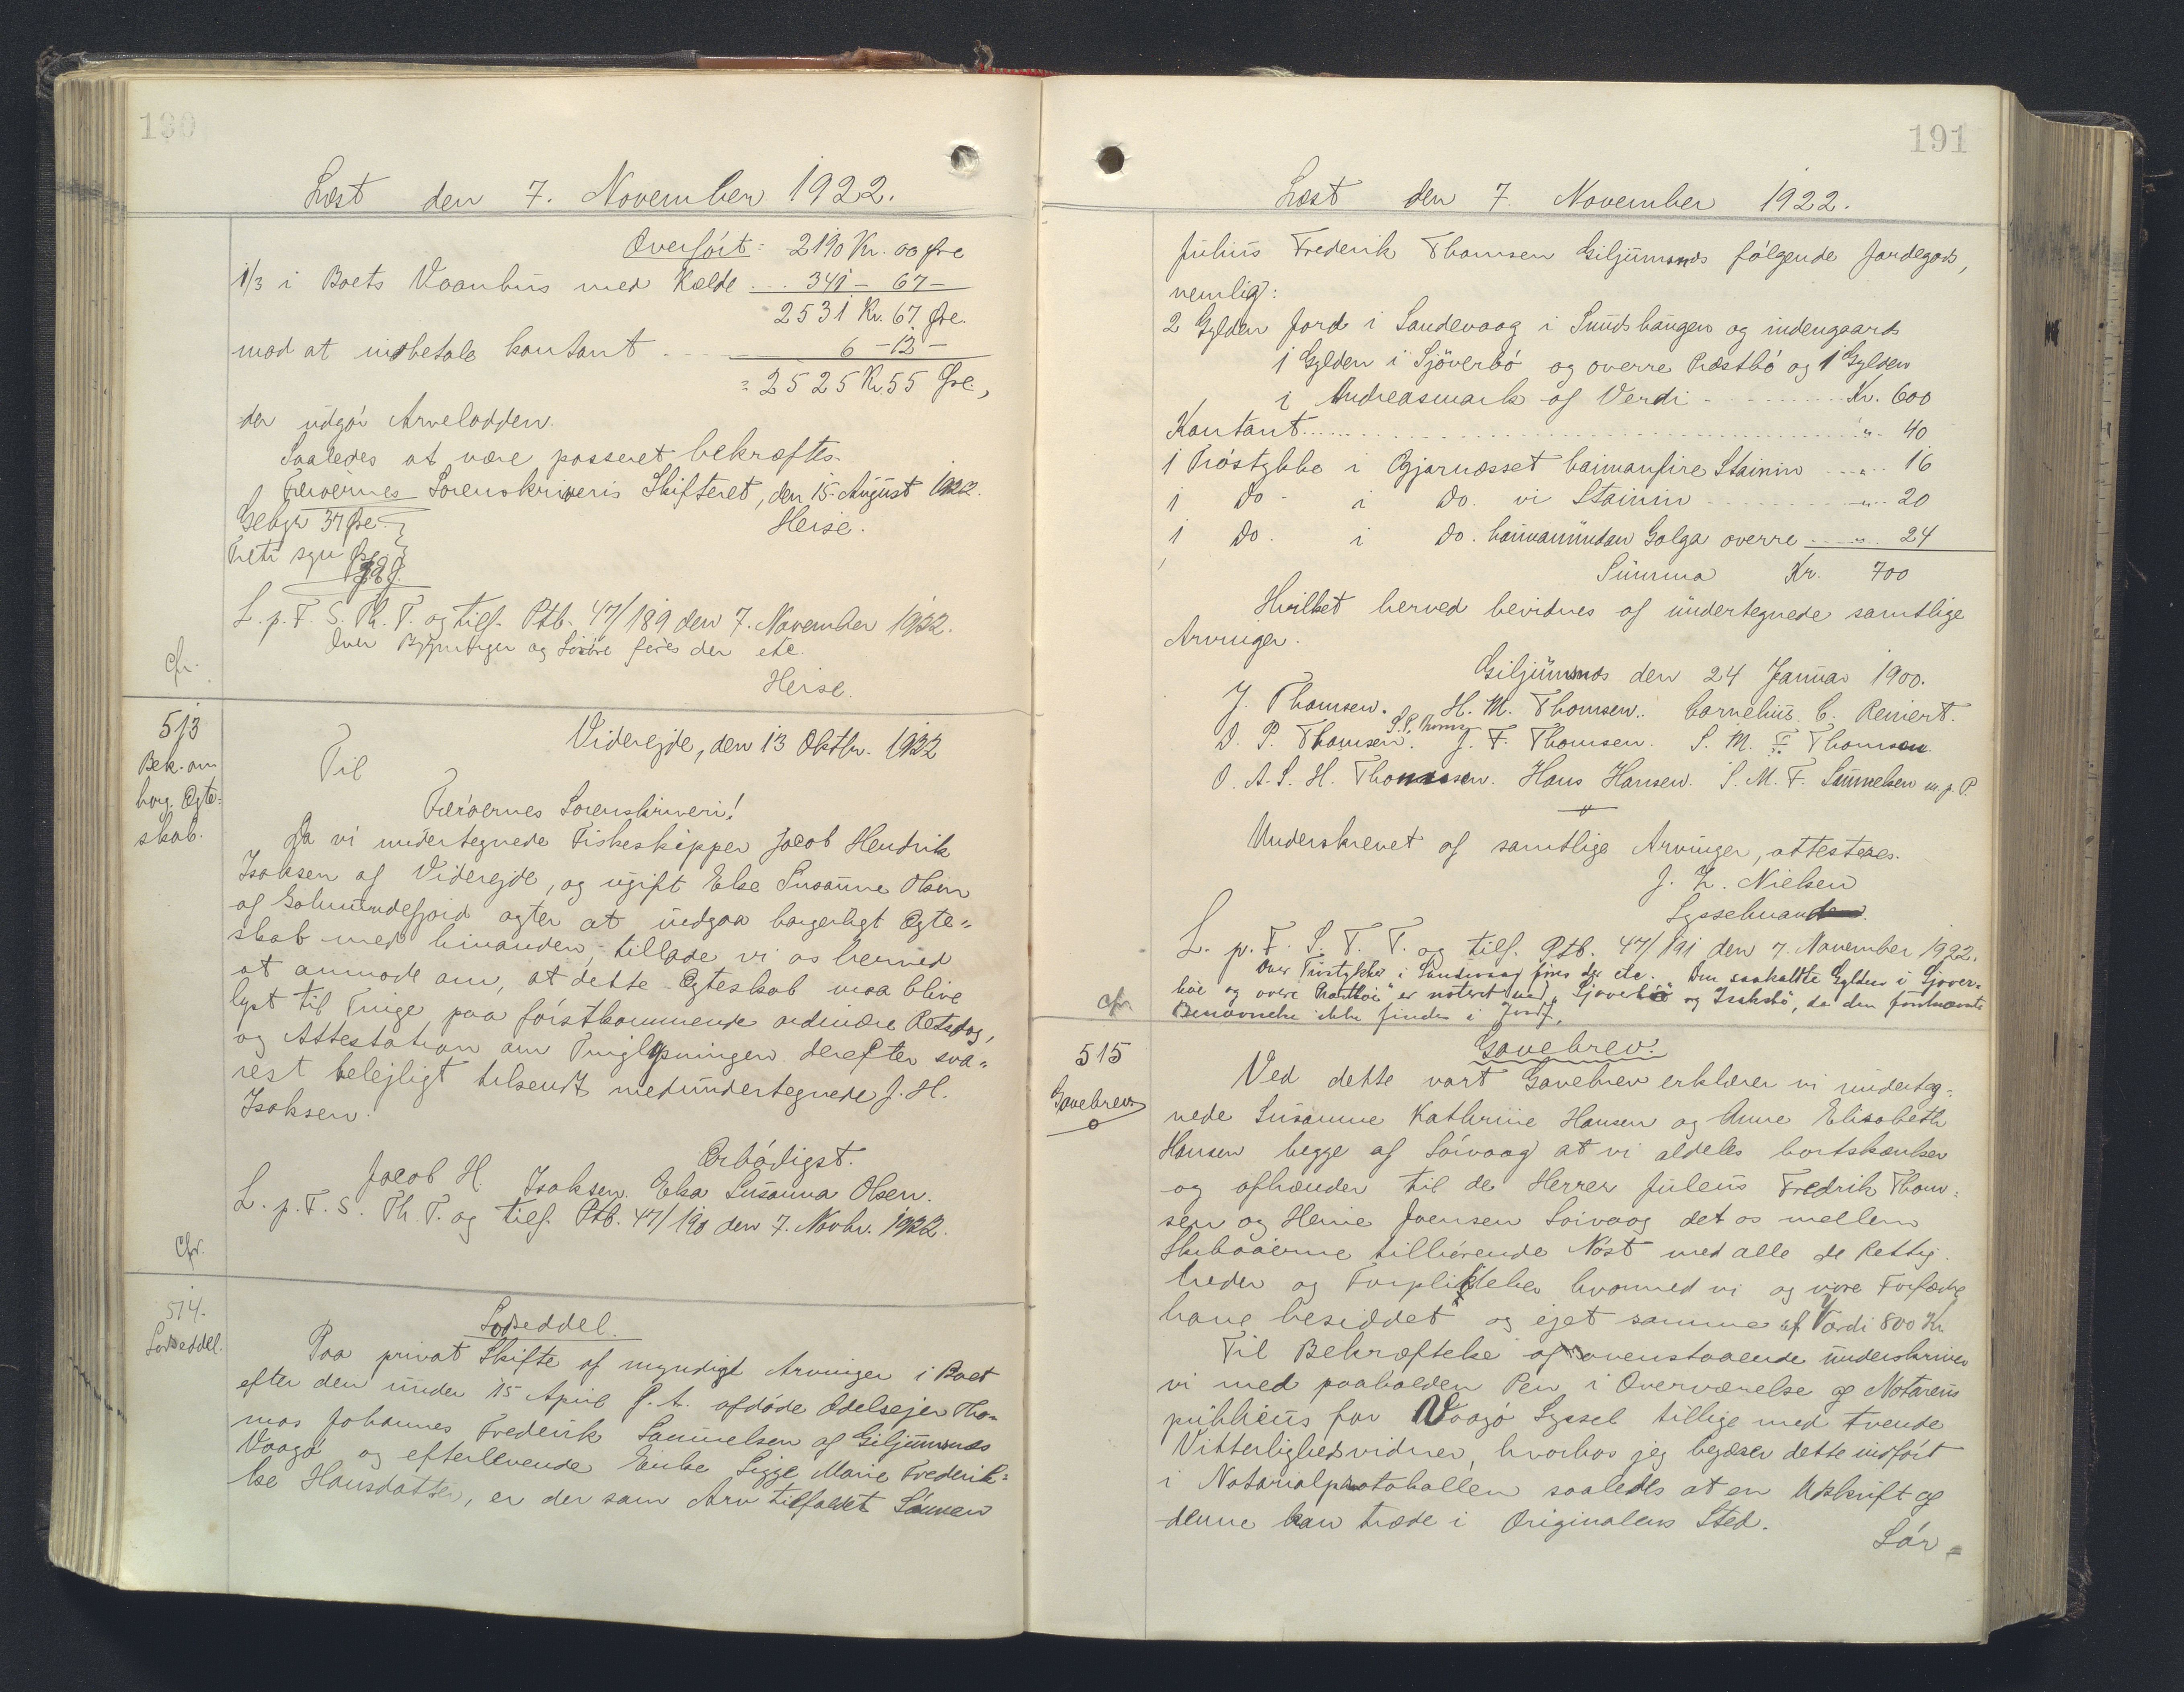 190
Læst den 7. November 1922.
Overført = 2190 Kr. 00 Øre
1/3 i Boets Vaanhus med Kælde ... 341 - 67 -
2531 Kr. 67 Øre.
mod at indbetale kontant ... 6 - 12 -
= 2525 Kr. 55 Øre,
der udgør Arvelodden.
Saaledes at være passeret bekræftes.
Færøernes Sorenskriveris Skifteret, den 15. August 1922.
Gebyr 37 Øre.
Heise.
L. p. F. S. Th. T. og tilf. Ptb. 47/189 den 7. November 1922.
Over Bygninger og Løsøre føres der etc.
cfr.
Heise.
513
Bek. om
borg. Ægte-
skab.
Viderejde, den 13 Oktbr. 1922
Til
Færøernes Sorenskriveri!
Da vi undertegnede Fiskeskipper Jacob Hendrik
Isaksen af Viderejde, og ugift Else Susanne Olsen
af Golmundefjord agter at indgaa borgerligt Ægte-
skab med hinanden, tillade vi os herved
at anmode om, at dette Ægteskab maa blive
lyst til Tinge paa førstkommende ordinære Retsdag,
og Attestation om Tinglysningen derefter sna-
rest belejligt tilsendt medundertegnede J. H.
Isaksen.
Ærbødigst.
Jacob H. Isaksen. Elsa Susanna Olsen.
L. p. F. S. Th. T. og tilf. Ptb. 47/190 den 7. Novbr. 1922.
Cfr.
514.
Lodseddel.
Lodseddel.
Paa privat Skifte af myndige Arvinger i Boet
efter den under 15 April f. A. afdøde Odelsejer Tho-
mas Johannes Frederik Samuelsen af Giljumnæs
Vaagø og efterlevende Enke Sigge Marie Frederik-
ke Hansdatter, er der som Arv tilfaldet Sønnen
191
Læst den 7. November 1922.
Julius Frederik Thomsen Giljumsnæs følgende Jordegods,
nemlig:
2 Gylden Jord i Sandevaag i Sundshaugen og indengaards
1 Gylden i Sjóverbø og overre Præstbø og 1 Gylden
i Andreasmark af Verdi ... Kr. 600
Kontant ... " 40
1 Trøstykke i Ogjarnæsset haimanfire Stainin ... " 16
1 Do i Do. vi Stainin ... " 20
1 Do. i Do. haimanundan Galga overre ... " 24
Summa Kr. 700
Hvilket herved bevidnes af undertegnede samtlige
Arvinger.
Giljumnæs den 24 Januar 1900.
J. Thomsen. H. M. Thomsen. Cornelius C. Reinert.
D. P. Thomsen. J. F. Thomsen. S. M. F. Thomsen.
O. A. S. H. Thomsen. Hans Hansen. S. M. F. Samuelsen m. p. P.
Underskrevet af samtlige Arvinger, attesteres.
J. L. Nielsen
Sysselmand.
L. p. F. S. T. T. og tilf. Ptb. 47/191 den 7. November 1922.
Over Trøstykke i Sandevaag føres der etc. Den saakaldte Gylden i Sjover-
bøe og overe Præstbøe" er noteret ved "Sjoverbø" og Isaksbø, da den førstnævnte
Benævnelse ikke findes i Jordf.
cfr.
515
Gavebrev
Gavebrev.
Ved dette vort Gavebrev erklærer vi underteg-
nede Susanne Kathrine Hansen og Anne Elisabeth
Hansen begge af Sörvaag at vi aldeles bortskænker
og afhænder til de Herrer Juleus Fredrik Thom-
sen og Heine Joensen Sörvaag det os mellem
Skibaaerne tilhørende Nöst med alle de Rettig-
heder og Forpligtelser hvormed vi og vore Forfædre
have besiddet og ejet samme af Værdi 800 Kr
Til Bekræftelse af ovenstaaende underskriver
vi med paaholden Pen i Overværelse af Notarius
publicus for Vaagø Syssel tillige med tvende
Vitterlighedsvidner, hvorhos jeg begærer dette indført
i Notarialprotokollen saaledes at en Udskrift af
denne kan træde i Originalens Sted.
Sör-